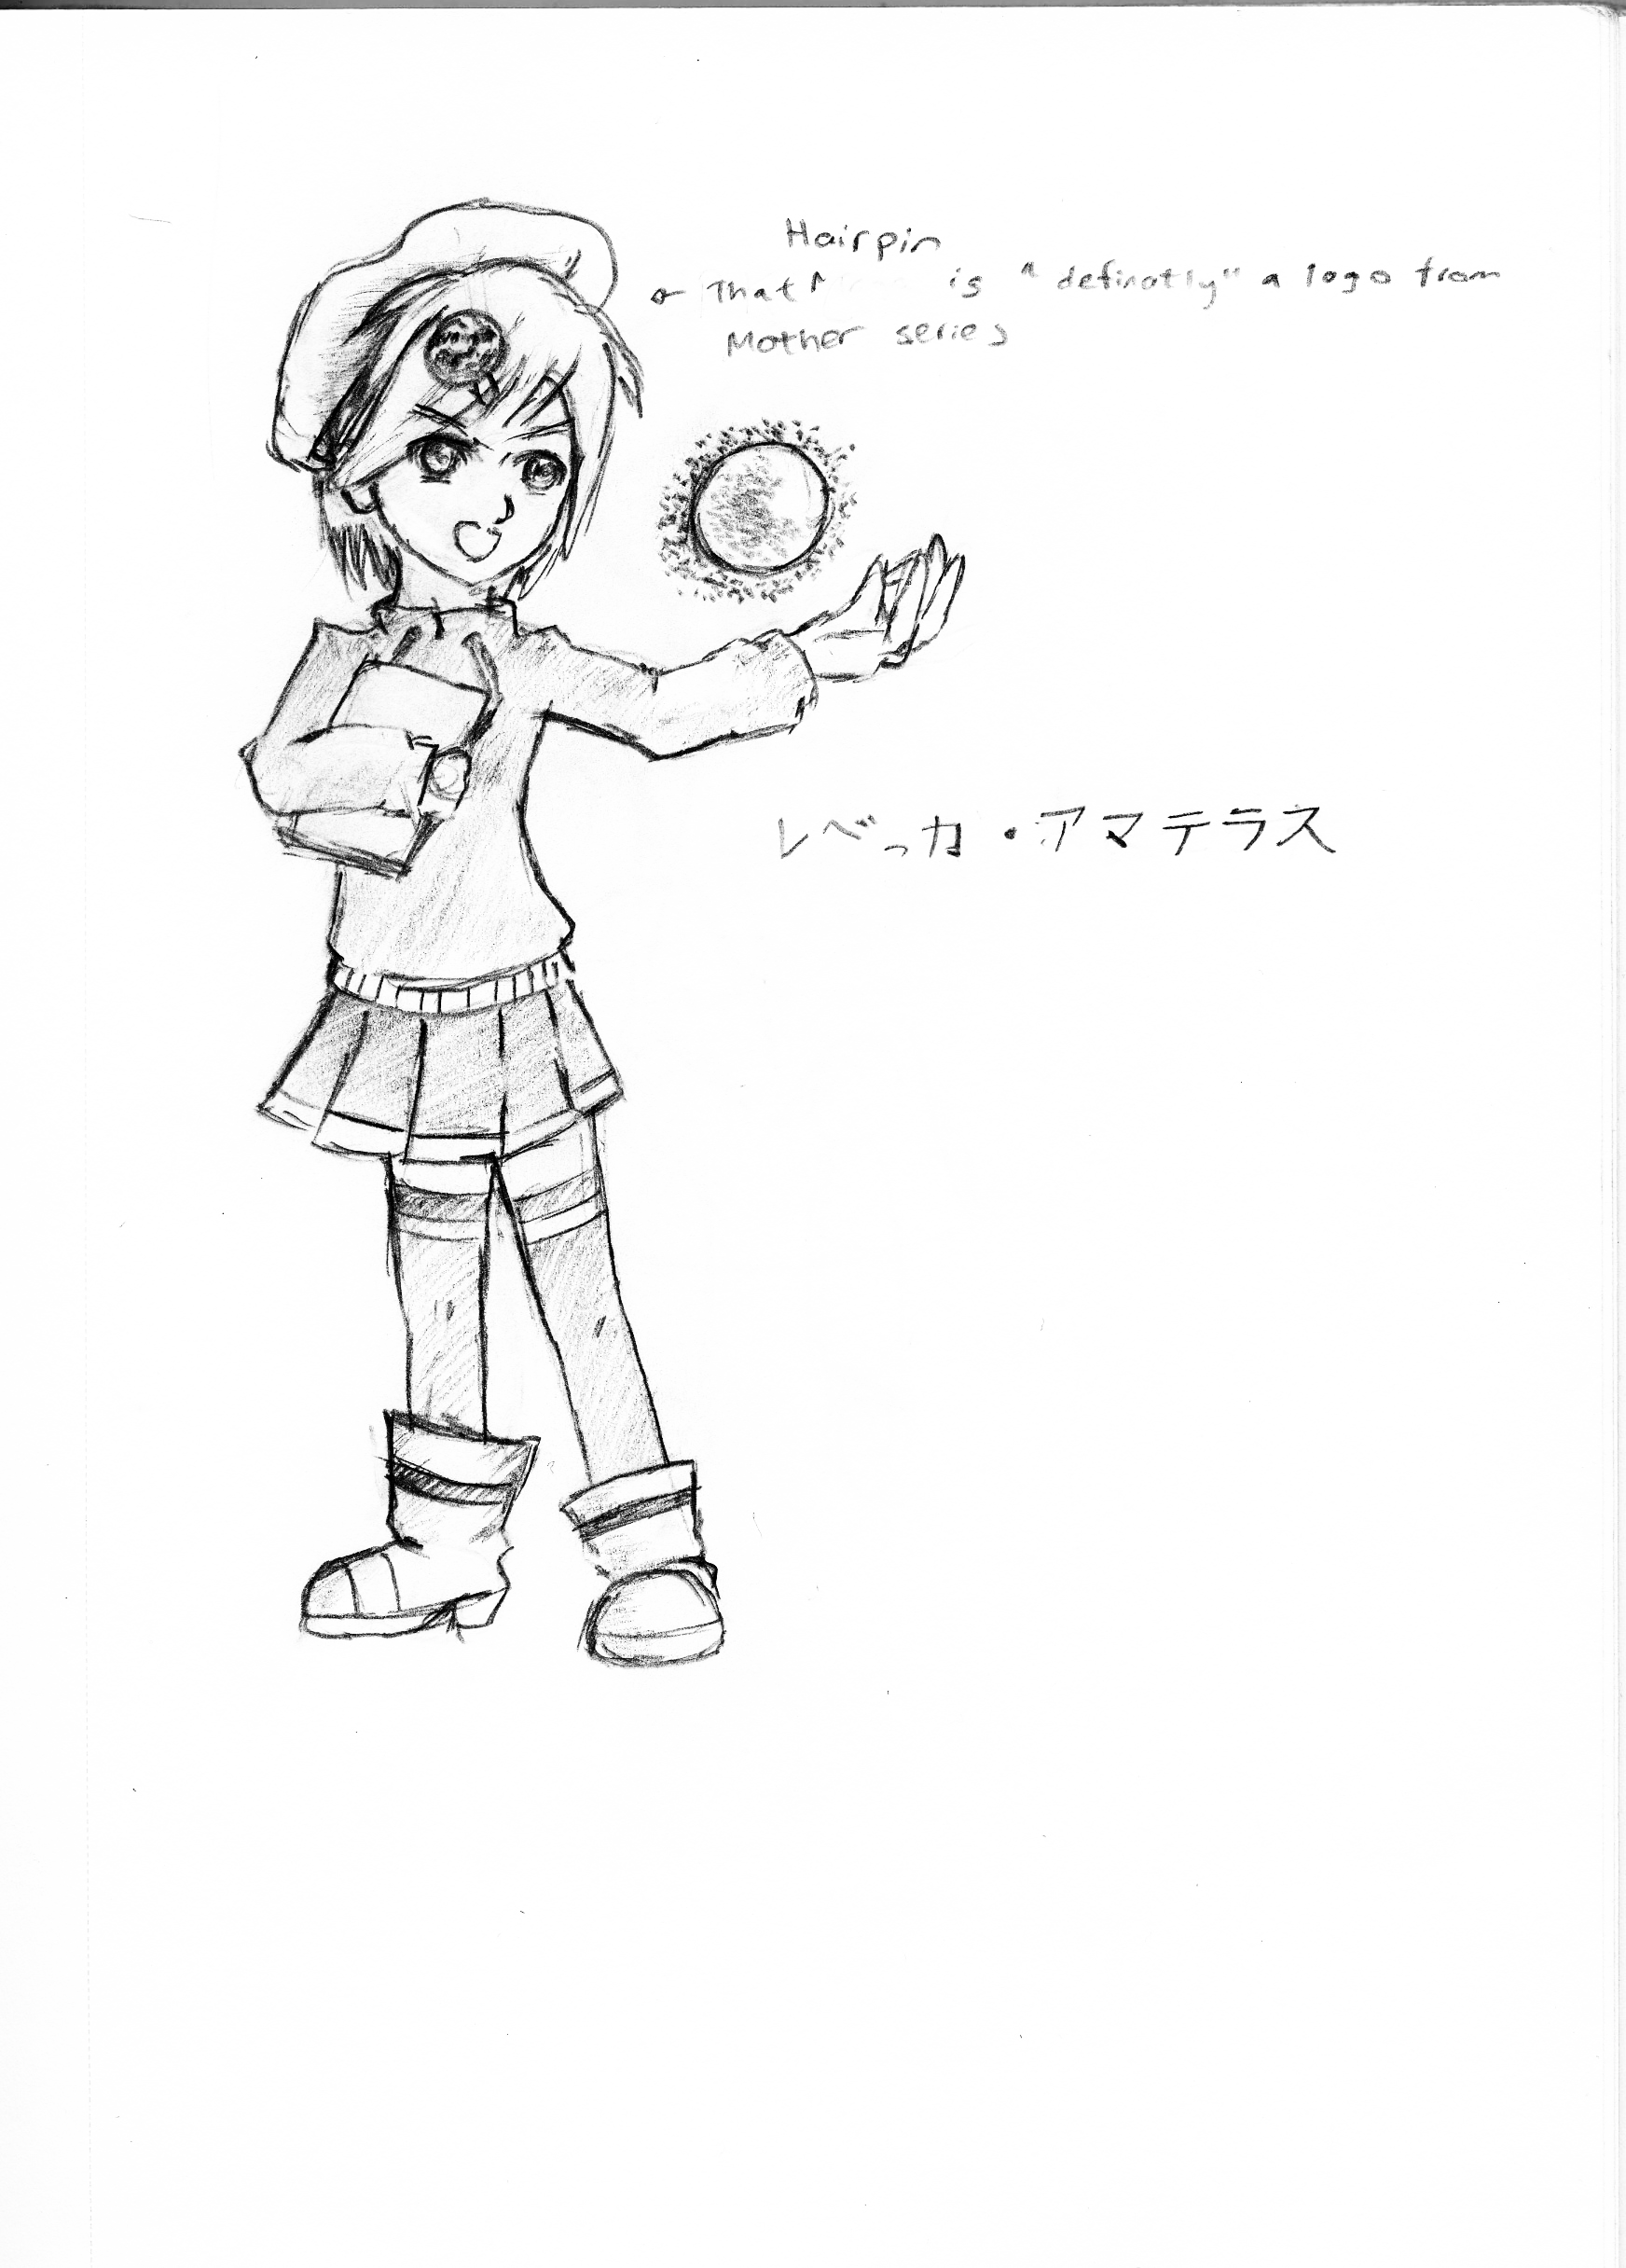 Hairpin
That is "definatly" a logo from
Mother series
レベッカ・アマテラス